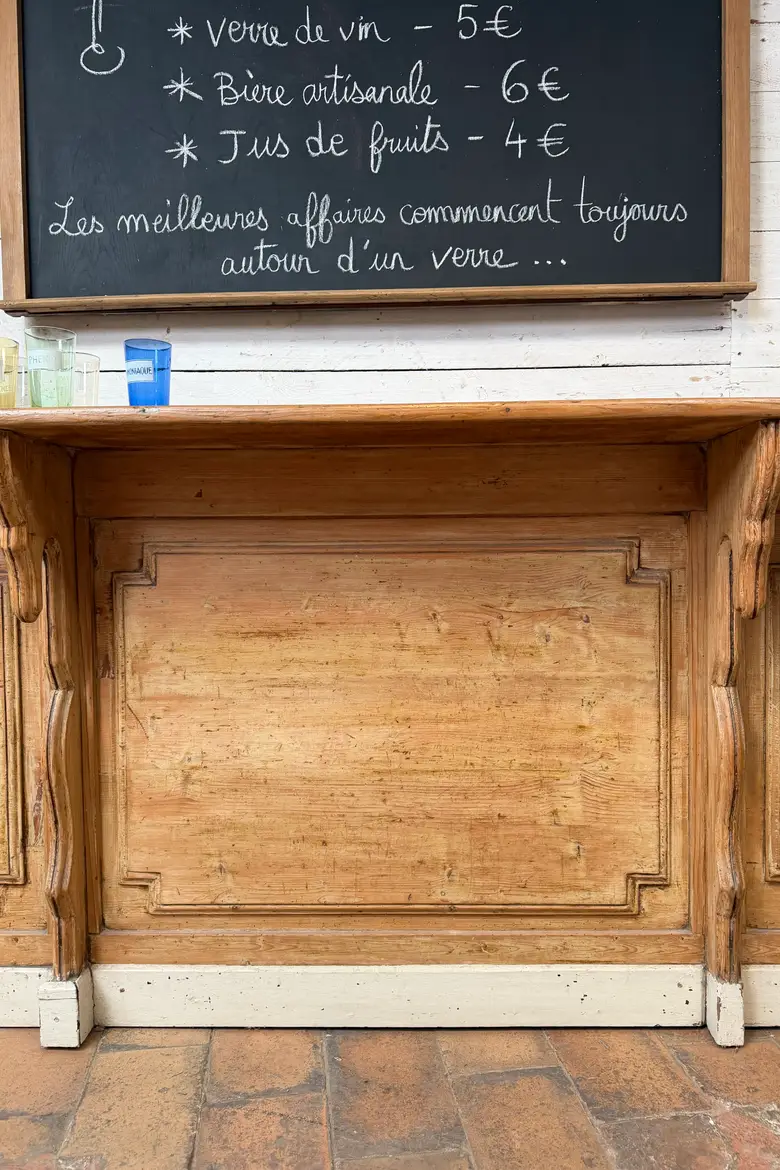 * Verre de vin - 5€
* Bière artisanale - 6€
* Jus de fruits - 4€
Les meilleures affaires commencent toujours
autour d'un verre ...